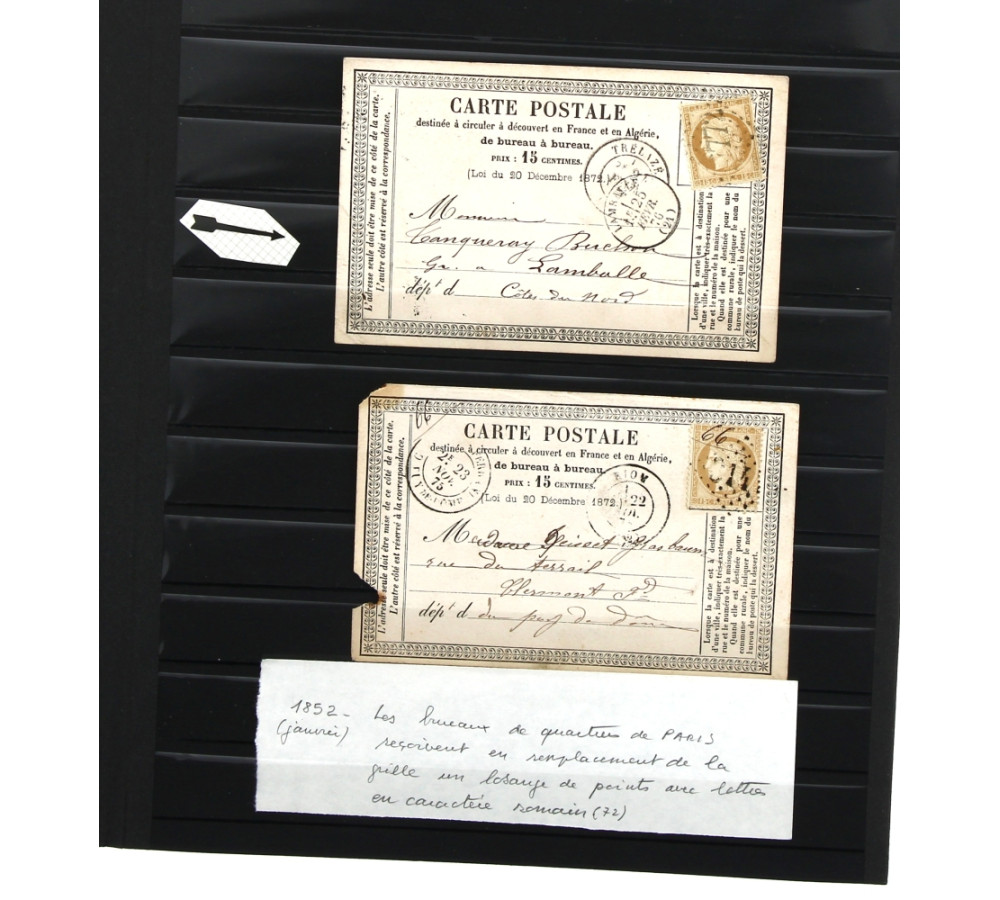 CARTE POSTALE
destinée à circuler à découvert en France et en Algérie,
de bureau à bureau.
PRIX : 15 CENTIMES.
(Loi du 20 Décembre 1872.)
L'adresse seule doit être mise de ce côté de la carte.
L'autre côté est réservé à la correspondance.
TRÉLIZE
25
FÉVR.
76
(21)
Monsieur
Tanqueray Buchon
Gr. a Lamballe
dépt d Côtes du Nord
Lorsque la carte est à destination
d'une ville, indiquer très-exactement la
rue et le numéro de la maison.
Quand elle est destinée pour une
commune rurale, indiquer le nom du
bureau de poste qui la dessert.
66
CARTE POSTALE
destinée à circuler à découvert en France et en Algérie,
de bureau à bureau.
PRIX : 15 CENTIMES.
(Loi du 20 Décembre 1872.)
L'adresse seule doit être mise de ce côté de la carte.
L'autre côté est réservé à la correspondance.
2E
23
NOV.
75
RIOM
22
66
Madame
rue du terrail
Clermont Fd
dépt d du puy de Dome
Lorsque la carte est à destination
d'une ville, indiquer très-exactement la
rue et le numéro de la maison.
Quand elle est destinée pour une
commune rurale, indiquer le nom du
bureau de poste qui la dessert.
1852 - Les bureaux de quartiers de PARIS
(janvier) reçoivent en remplacement de la
grille un losange de points avec lettres
en caractère romain (72)